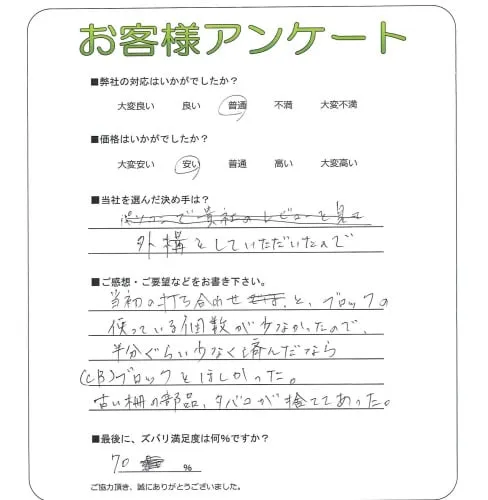 お客様アンケート
■弊社の対応はいかがでしたか？
大変良い 良い 普通 不満 大変不満
■価格はいかがでしたか？
大変安い 安い 普通 高い 大変高い
■当社を選んだ決め手は？
パソコンで貴社のレビューを見て
外構をしていただいたので
■ご感想・ご要望などをお書き下さい。
当初の打ち合わせ と、ブロックの
使っている個数が少なかったので、
半分ぐらい少なく済んだなら
(CB)ブロックをほしかった。
古い柵の部品、タバコが捨ててあった。
■最後に、ズバリ満足度は何％ですか？
70 %
ご協力頂き、誠にありがとうございました。